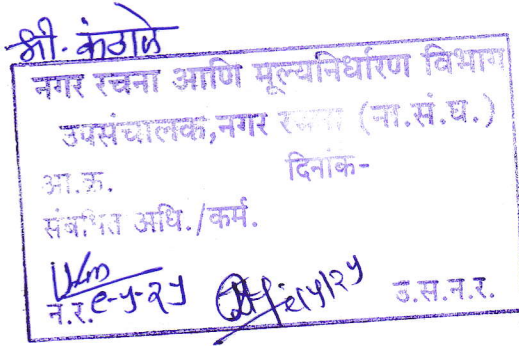 श्री. कंठाळे
नगर रचना आणि मूल्यनिर्धारण विभाग
उपसंचालक,नगर रचना (ना.सं.घ.)
आ.क्र. दिनांक-
संबधित अधि./कर्म.
न.र. ९-५-२५ ९/५/२५ उ.स.न.र.